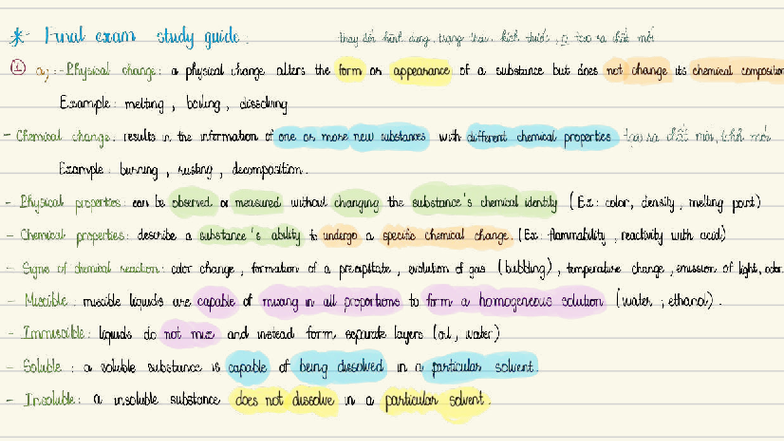 * Final exam study guide: thay đổi hình dạng, trạng thái, kích thước, ko tạo ra chất mới
① a, :- Physical change: a physical change alters the form or appearance of a substance but does not change its chemical composition
Example: melting, boiling, dissolving
- Chemical change: results in the information of one or more new substances with different chemical properties tạo ra chất mới, tính mới
Example: burning, rusting, decomposition.
- Physical properties: can be observed or measured without changing the substance's chemical identity (Ex: color, density, melting point)
- Chemical properties: describe a substance's ability to undergo a specific chemical change. (Ex: flammability, reactivity with acid)
- Signs of chemical reaction: color change, formation of a precipitate, evolution of gas (bubbling), temperature change, emission of light, odor
- Miscible: miscible liquids are capable of mixing in all proportions to form a homogeneous solution (water, ethanol).
- Immiscible: liquids do not mix and instead form separate layers (oil, water)
- Soluble: a soluble substance is capable of being dissolved in a particular solvent.
- Insoluble: a insoluble substance does not dissolve in a particular solvent.